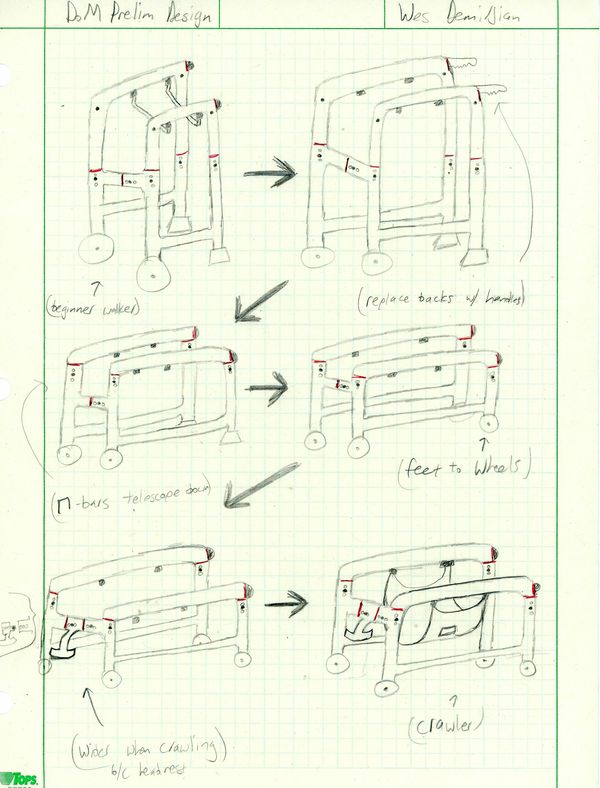 DoM Prelim Design
Wes Demirjian
(beginner walker)
(replace backs w/ handles)
(Π-bars telescope down)
(feet to wheels)
(Wider when crawling)
b/c headrest
(Crawler)
TOPS